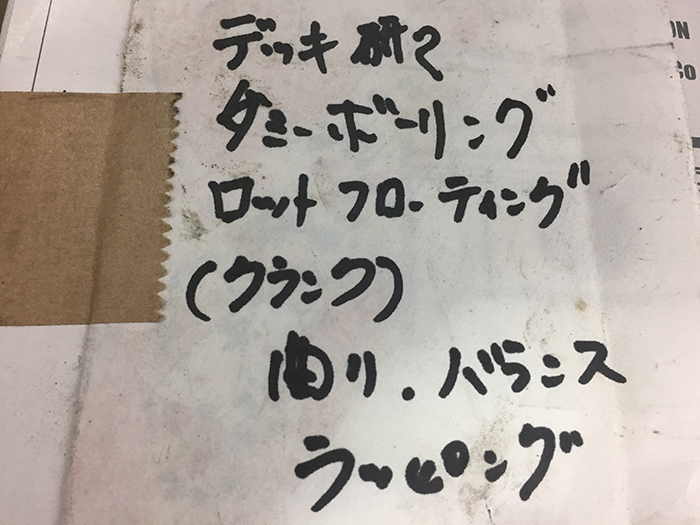 デッキ研マ
ダミーボーリング
ロットフローティング
(クランク)
曲り.バランス
ラッピング
ON